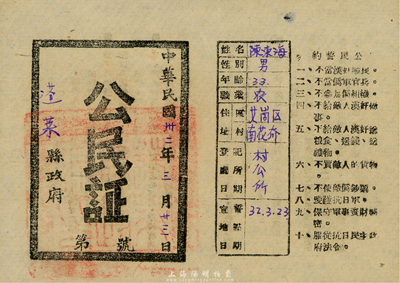 中華民國卅二年三月廿三日
公民証
蓬萊縣政府
第 號
姓名 陳東海
性別 男
年齡 33
職業 农
住址 艾崗区
登記所 村公所
宣誓日期 32.3.23
公民誓約
一、不當漢奸
二、不當偽軍官兵
三、不參加偽組織
四、不給敵人漢奸做事
五、不給敵人漢奸送糧食、送錢、送禮物
六、不買敵人的貨物
七、不使偽鈔
八、擁護抗日軍
九、保守軍事資財秘密
十、服從抗日民主政府法令
上海陽明拍賣